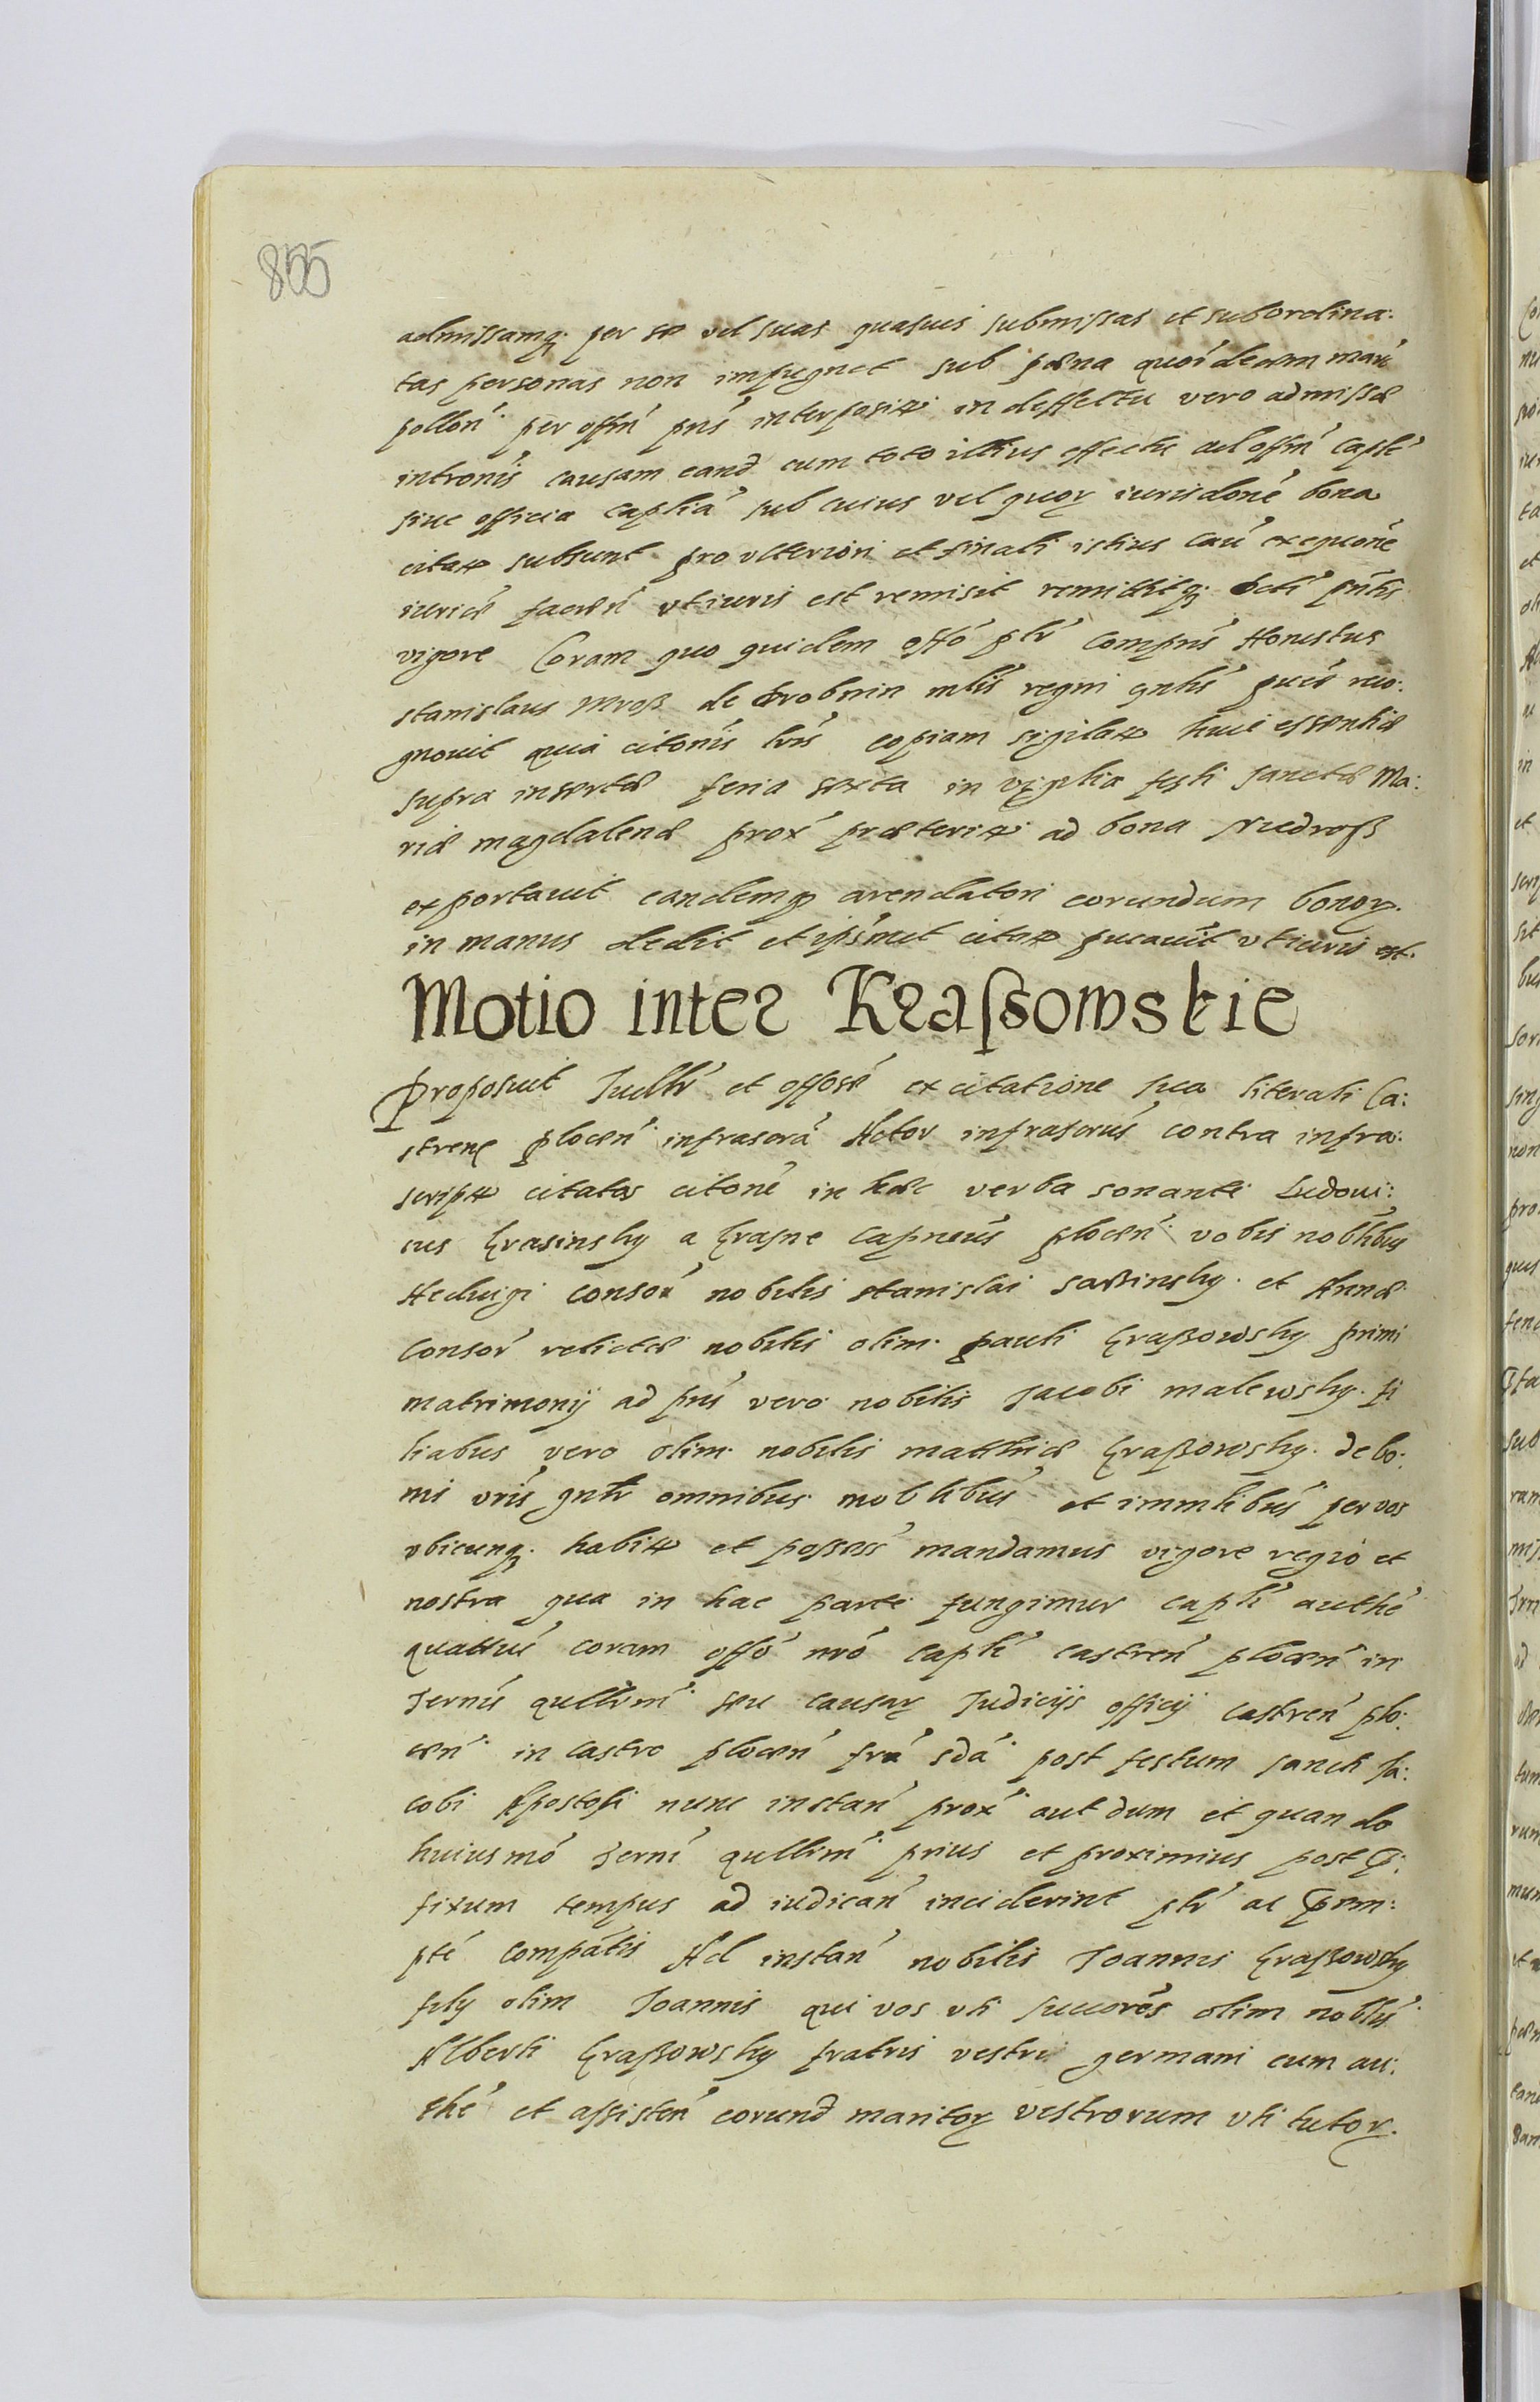 855
admissamq. per se vel suas quasuis submissas et subordina:
tas personas non impugnet sub pœna quoī decem marē
pollōn per offīn pñs interposi in deffectu vero admissæ
intronīs causam eand cum toto illius effectu ad offīn capłē
siue officia capłia sub cuius vel quor iurisdonē bona
cita subsunt pro vlteriori et finali istius cau exequonē
iuricē facēn vt iuris est remisit remittitq. Decī pñtis
vigore Coram quo quidem offo płr compñs Honestus
stanislaus Mroß de Drobnin młis regni gnłis pucīs reco:
gnouit quia citonis łris copiam sigila huic essentiæ
supra insertæ feria sexta in vigilia festi sanctæ Ma:
riæ magdalenæ prox præteri ad bona Niedroß
exportauit eandemq arendatori eorundum bonor.
in manus dedit et ipsmet cita pucauit vt iuris est.
Motio inter Kraſsowskie
Proposuit Iudłr et offosē ex citatione sua literali Ca:
strenē plocēn infrascra Actor infrascrus contra infra:
scrip citatos citonē in hæc verba sonanti Ludoui:
cus Krasinsky a Krasne Capneus plocēn vobis nobłibus
Heduigi consōr nobilis stanislai saßinsky. et Annæ
Consōr relictæ nobilis olim pauli Kraßowsky primi
matrimonij ad pñs vero nobilis Jacobi malewsky. fi
liabus vero olim nobilis matthiæ Kraßowsky. de bo:
nis vrīs gnłr omnibus mobłibus et immłibus per vos
vbicunq. habi et possess mandamus vigore regio et
nostra qua in hac parte fungimur capłi authē
quattus coram offō nrō capłi castrēn plocēn in
Termīs qullimī seu causar Judicijs officij castrēn plo:
cēn in castro plocēn fra sda post festum sancti Ja:
cobi Apostoli nunc instan prox aut dum et quando
huiusmō Termī qullimī prius et proximius post p:
fixum tempus ad iudican inciderint płr ac pem:
ptē compatis Ad instan nobilis Joannis Kraßowsky
fily olim Joannis qui vos vti succores olim nobłis
Alberti Kraßowsky fratris vestri germani cum au:
thē et assistēn eorund maritor vestrorum vti tutor.